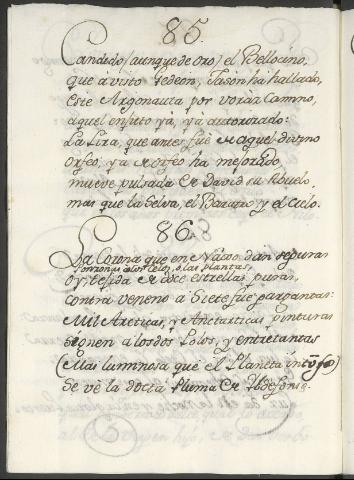 85
Candido (aunque de oro) el Bellocino,
que à visto Gedeon, Jason ha hallado,
Este Argonauta por voràz Camino,
aquel enjuto yà, yà autorizado:
La Lira, que antes fuè de aquel divino
Orfeo, ya de Orfeo ha mejorado,
mueve pulsada de David su Abuelo,
mas que la selva, el Bararro, y el cielo.
86
La Corona que en Naxo dan seguras
Pomonas a los celos, o las plantas,
oy texida de doce estrellas puras,
contra veneno a Siete fue gargantas:
Mil Arcticas, y Antarticas pinturas
ponen a los dos Polos, y entre tantas
(Mas luminosa que el Planeta
Se vè la docta Pluma de Ildefonso.